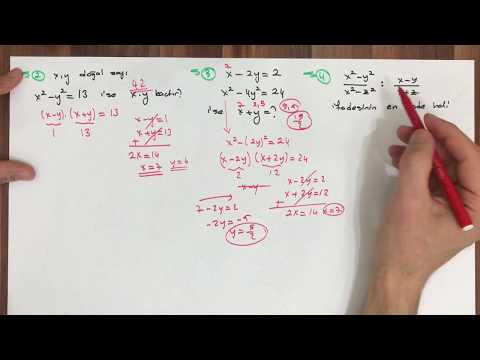 2) x,y doğal sayı
x² - y² = 13 ise x.y kaçtır?
42
(x-y).(x+y) = 13
1 13
x-y=1
+ x+y=13
2x = 14
x = 7 y = 6
3) x - 2y = 2
x² - 4y² = 24
ise x + y = ?
x² - (2y)² = 24
(x-2y) (x+2y) = 24
2 12
x-y
x-2y=2
+ x+2y=12
2x = 14 x=7
7-2y=2
-2y=-5
y = 5/2
4) x² - y² / x² - z² : x-y
ifadesinin en hali